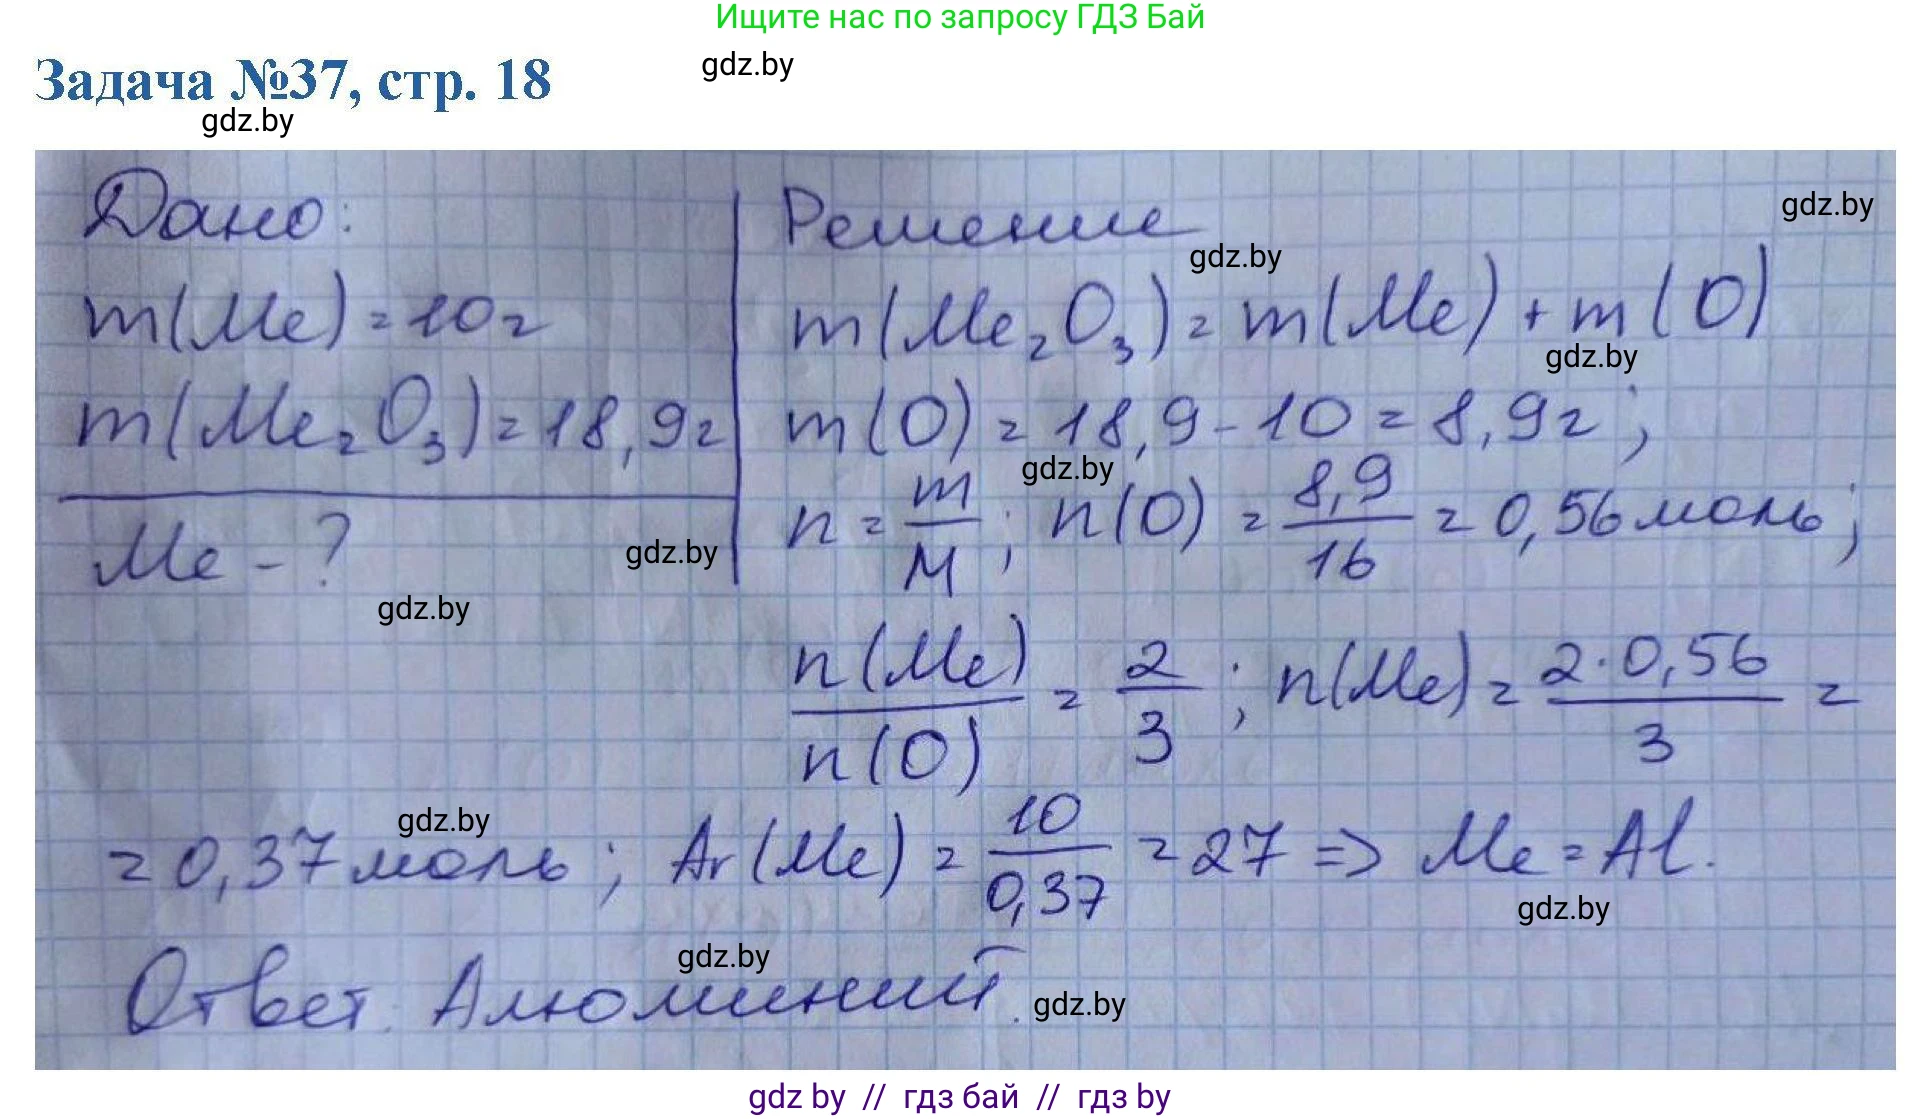 Ищите нас по запросу ГДЗ Бай
Задача №37, стр. 18
gdz.by
gdz.by
Дано:
m(Me)=10г
m(Me₂O₃)=18,9г
Me - ?
gdz.by
gdz.by
Решение
gdz.by
gdz.by
m(Me₂O₃)=m(Me)+m(O)
gdz.by
m(O)=18,9-10=8,9г;
gdz.by
n=m/M; n(O)=8,9/16=0,56моль;
n(Me)/n(O)=2/3; n(Me)=2·0,56/3=
gdz.by
=0,37моль; Ar(Me)=10/0,37=27=>Me=Al.
gdz.by
gdz.by
Ответ: Алюминий.
gdz.by
gdz by // гдз бай // гдз by